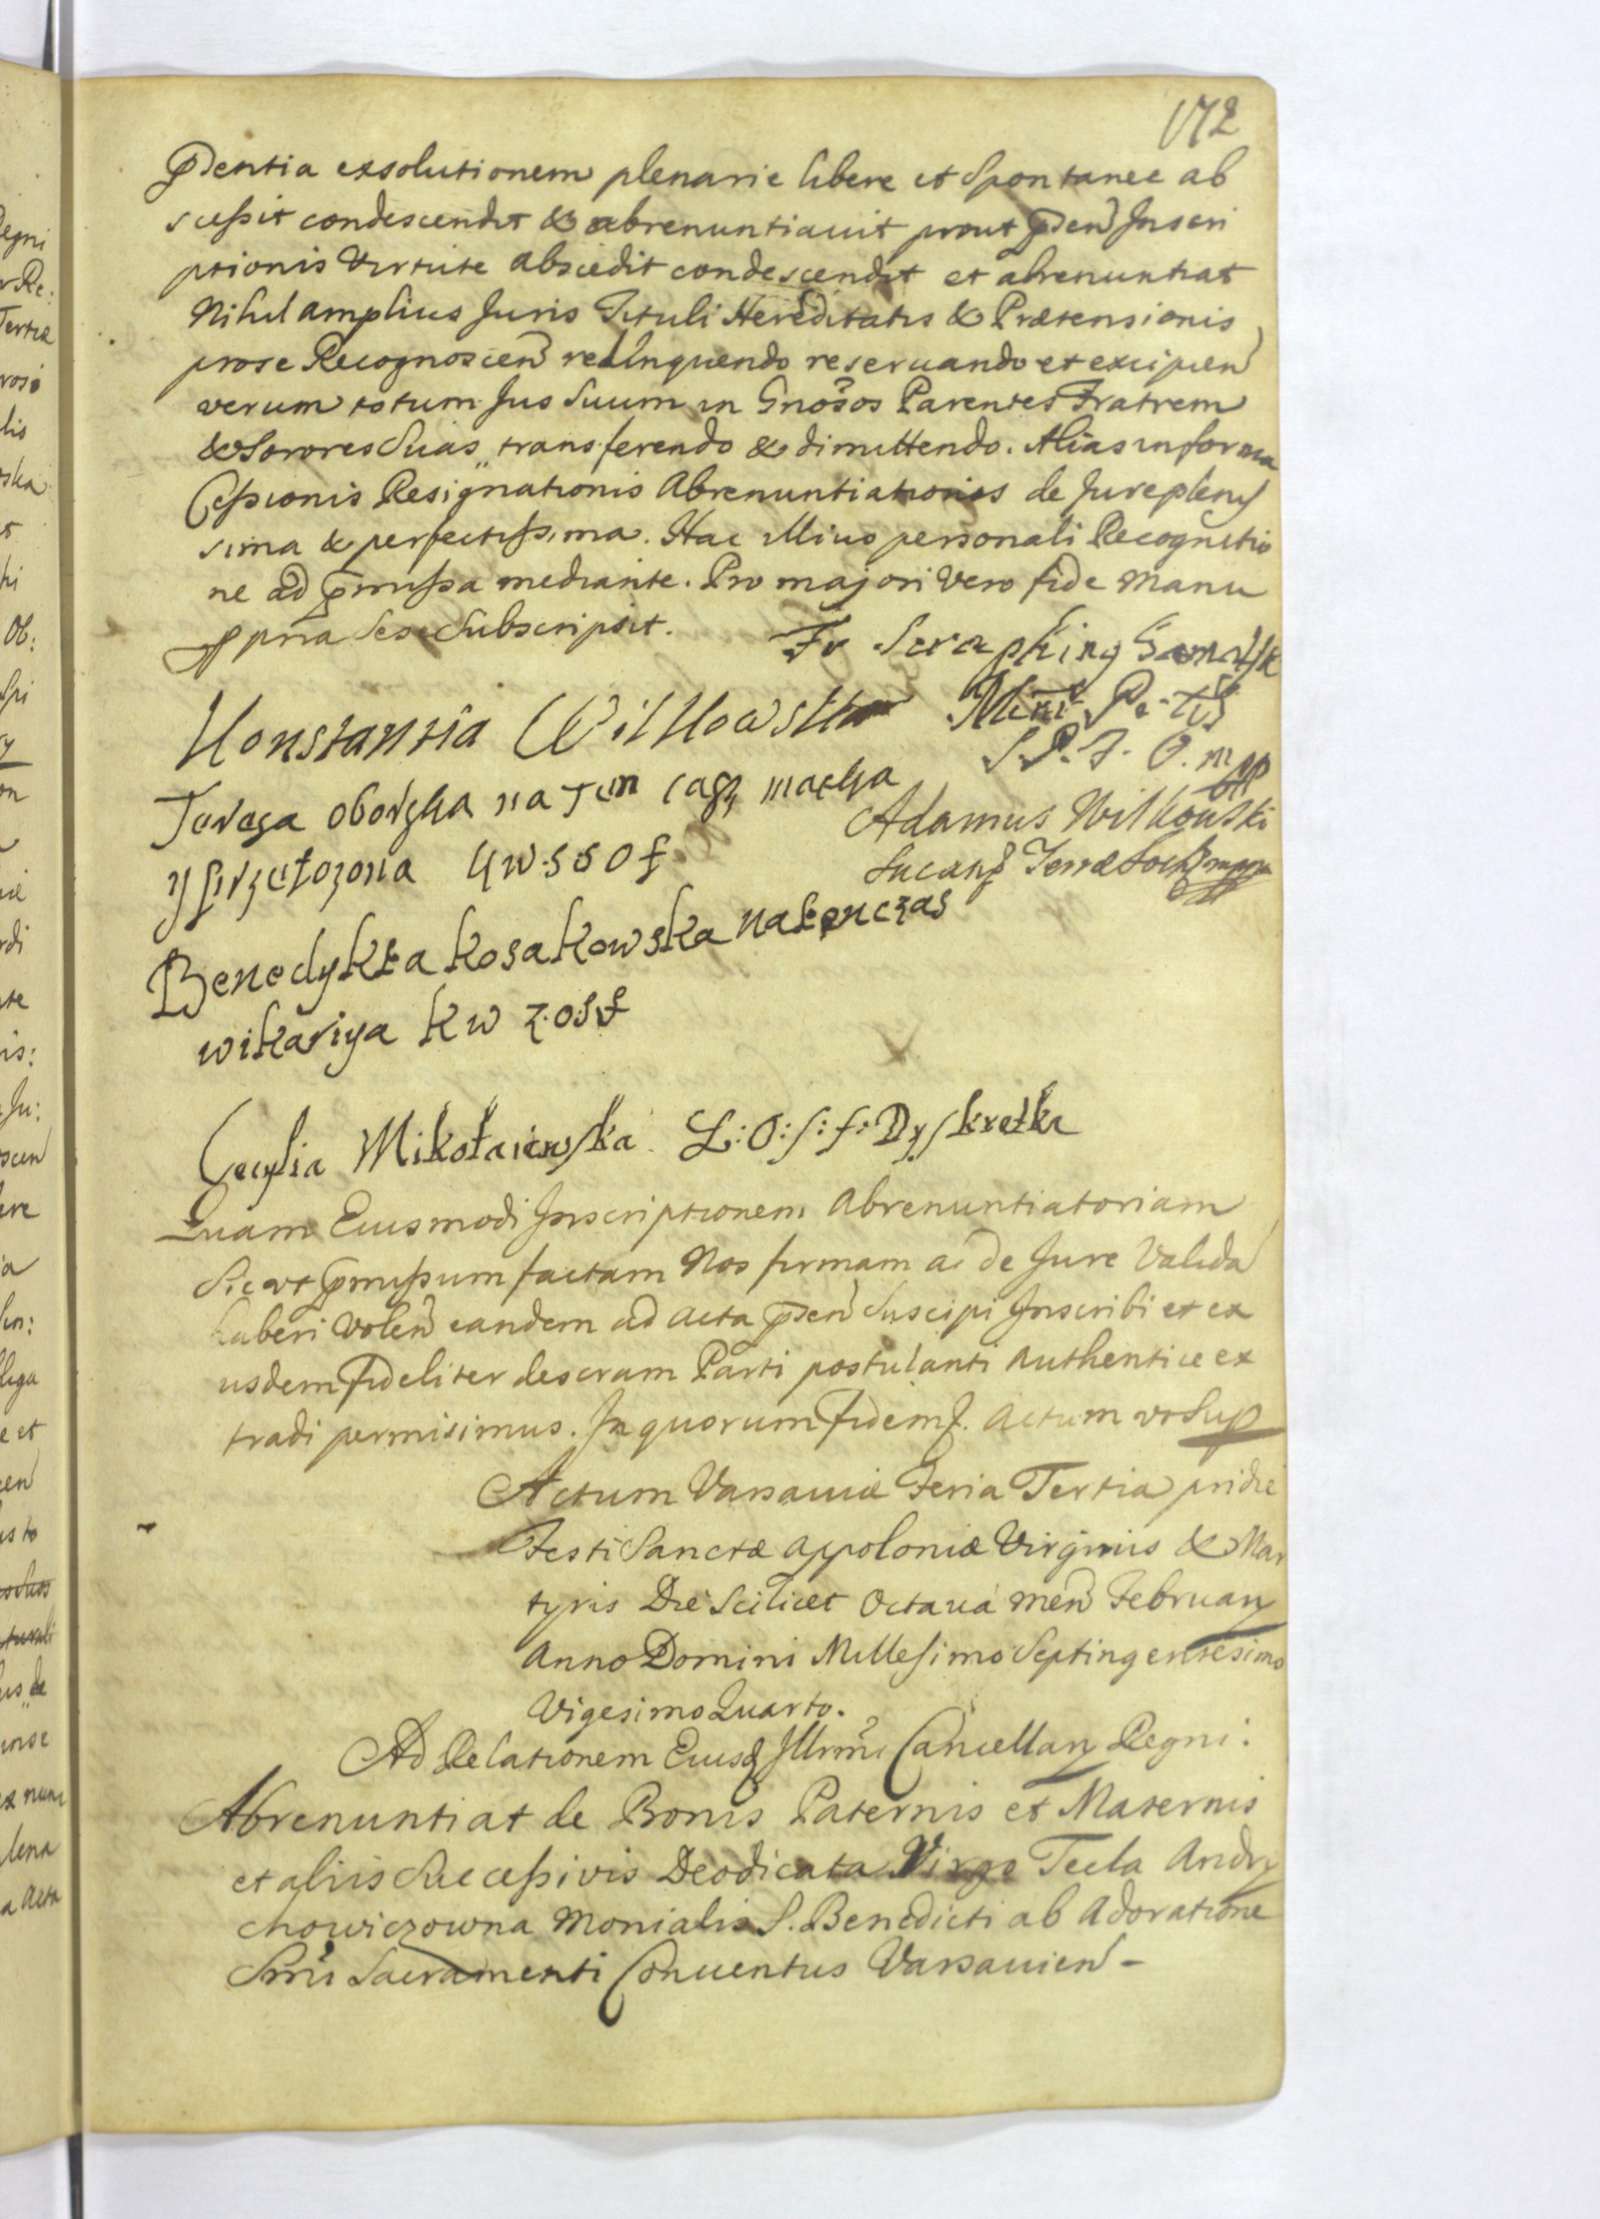 172
Pdentia exsolutionem plenarie libere et Spontanee ab
scessit condescendit & abrenuntiavit prout pden Inscri
ptionis Virtute abscedit condescendit et abrenuntiat
Nihil amplius Juris Tituli Hereditatis & Prætensionis
prose Recognoscen relinquendo reservando et excipien
verum totum Jus Suum in Gnosos Parentes Fratrem
& Sorores Suas transferendo & dimittendo. Alias in forma
Cessionis Resignationis Abrenuntiationis de Jure pleniss
sima & perfectissima. Hac illius personali Recognitio
ne ad pmissa mediante. Pro majori vero fide Manu
ppria Sese Subscripsit.
Fr Seraphing
Konstantia Wilkowska
S.P.F.O. mpp
Teresa oborska na Ten cas matka
Adamus Wilkowski
y przełozona
Terræ Soch mppa
Benedykta kosakowska natenczas
wikariya kw z.o.s.f
Cecylia Mikołaiewska Z:O:S:f: Dyskretka
Quam Eiusmodi Inscriptionem Abrenuntiatoriam
Sic ut pmissum factam Nos firmam ac de Jure Valida
haberi volen eandem ad acta psen Suscipi Inscribi et ex
iisdem fideliter descram Parti postulanti authentice ex
tradi permisimus. In quorum fidem. Actum ut Sup
Actum Varsaviæ Feria Tertia pridie
Festi Sanctæ appoloniæ Virginis & Mar
tyris Die Scilicet Octava men February
Anno Domini Millesimo Septingentesimo
Vigesimo Quarto.
Ad Relationem Eiusd Illrmi Cancellary Regni:
Abrenuntiat de Bonis Paternis et Maternis
et aliis Successivis Deodicata Virgo Tecla Andry
chowiczowna Monialis S. Benedicti ab Adoratione
Smi Sacramenti Conventus Varsavien-